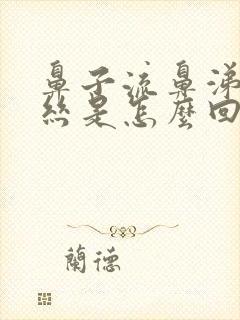 鼻子流鼻涕
絲是怎麼回
蘭德